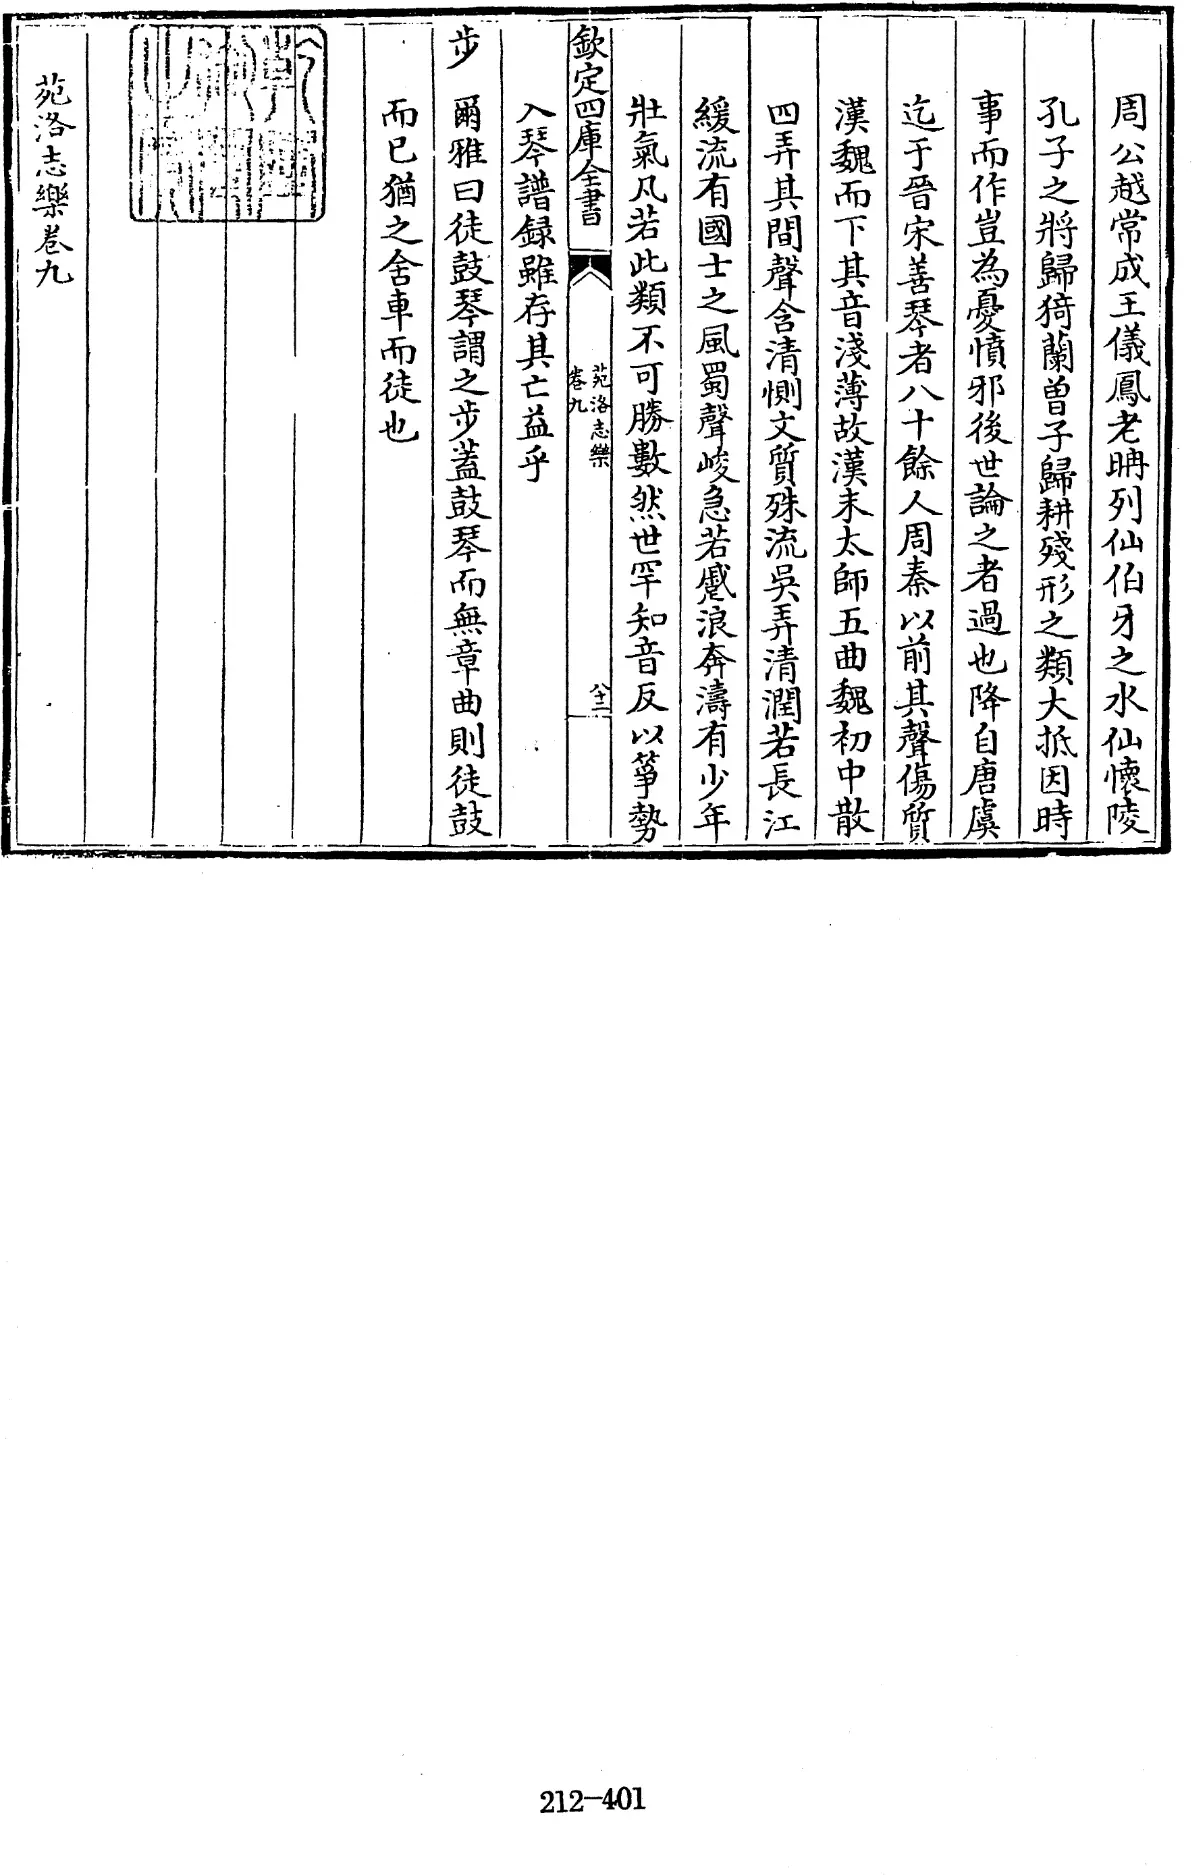 周公越常成王儀鳳老聃列仙伯牙之水仙懷陵
孔子之將歸猗蘭曾子歸耕殘形之類大抵因時
事而作豈為憂憤邪後世論之者過也降自唐虞
迄于晉宋善琴者八十餘人周秦以前其聲傷質
漢魏而下其音淺薄故漢末太師五曲魏初中散
四弄其間聲含清惻文質殊流吳弄清潤若長江
緩流有國士之風蜀聲峻急若蹙浪奔濤有少年
壯氣凡若此類不可勝數然世罕知音反以箏勢
欽定四庫全書
苑洛志樂
卷九
八十二
入琴譜録雖存其亡益乎
步 爾雅曰徒鼓琴謂之步蓋鼓琴而無章曲則徒鼓
而已猶之舍車而徒也
苑洛志樂卷九
212-401